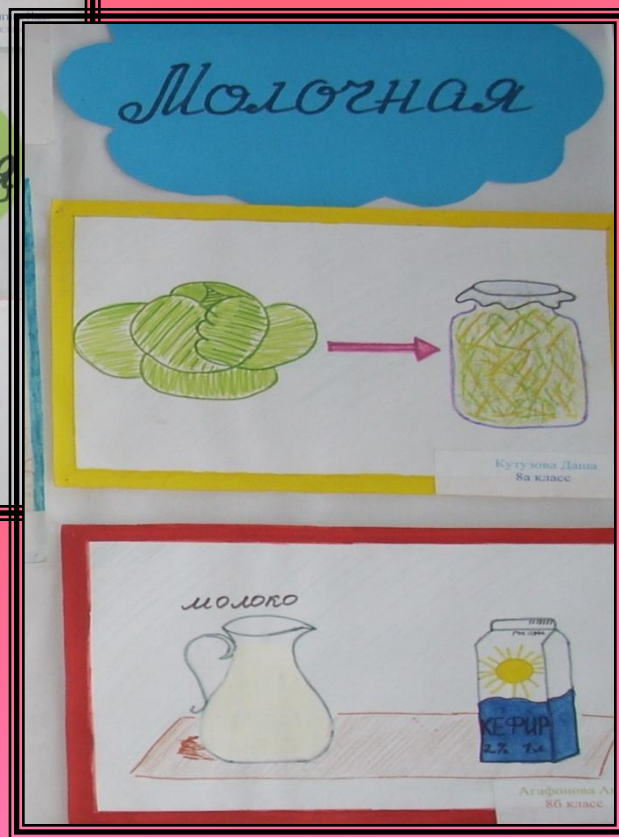 Молочная
Кутузова Даша
8а класс
молоко
КЕФИР
2% 1л
Агафонова
8б класс